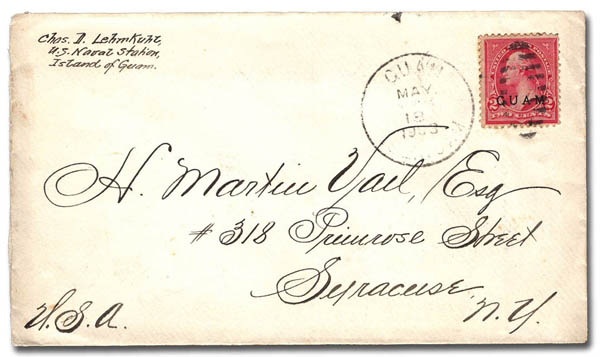 Chas. D. Lehmkuhl,
U.S. Naval Station,
Island of Guam.
GUAM
MAY
19
GUAM
H. Martin Vail, Esq
# 318 Primrose Street
Syracuse, N.Y.
U.S.A.